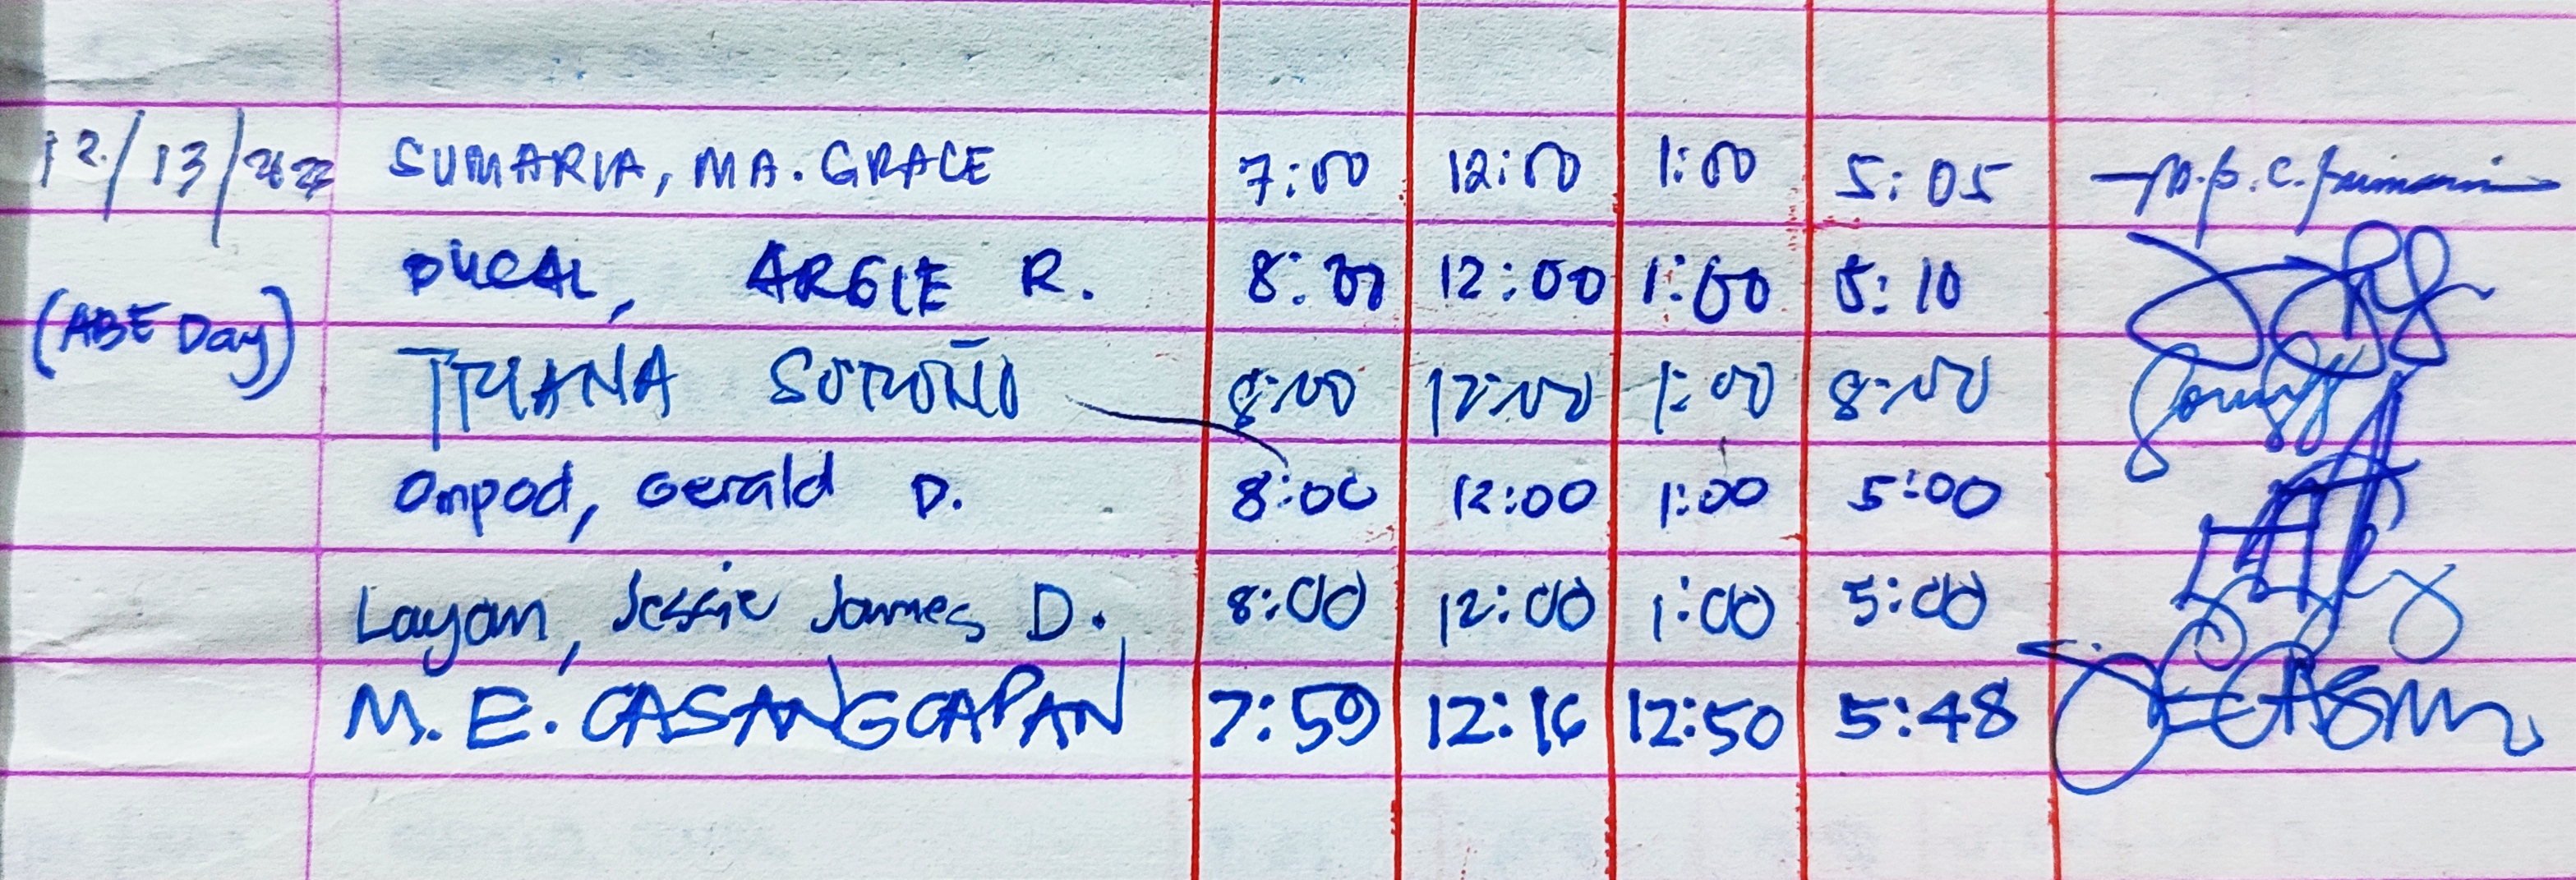 12/13/2022 SUMARIA, MA. GRACE 7:00 12:00 1:00 5:05
DUCAL, ARGIE R. 8:00 12:00 1:00 5:10
(ABE Day)
8:00 12:00 1:00 8:00
Ompod, Gerald D. 8:00 12:00 1:00 5:00
Layan, Jessie James D. 8:00 12:00 1:00 5:00
M. E. CASANGCAPAN 7:59 12:16 12:50 5:48